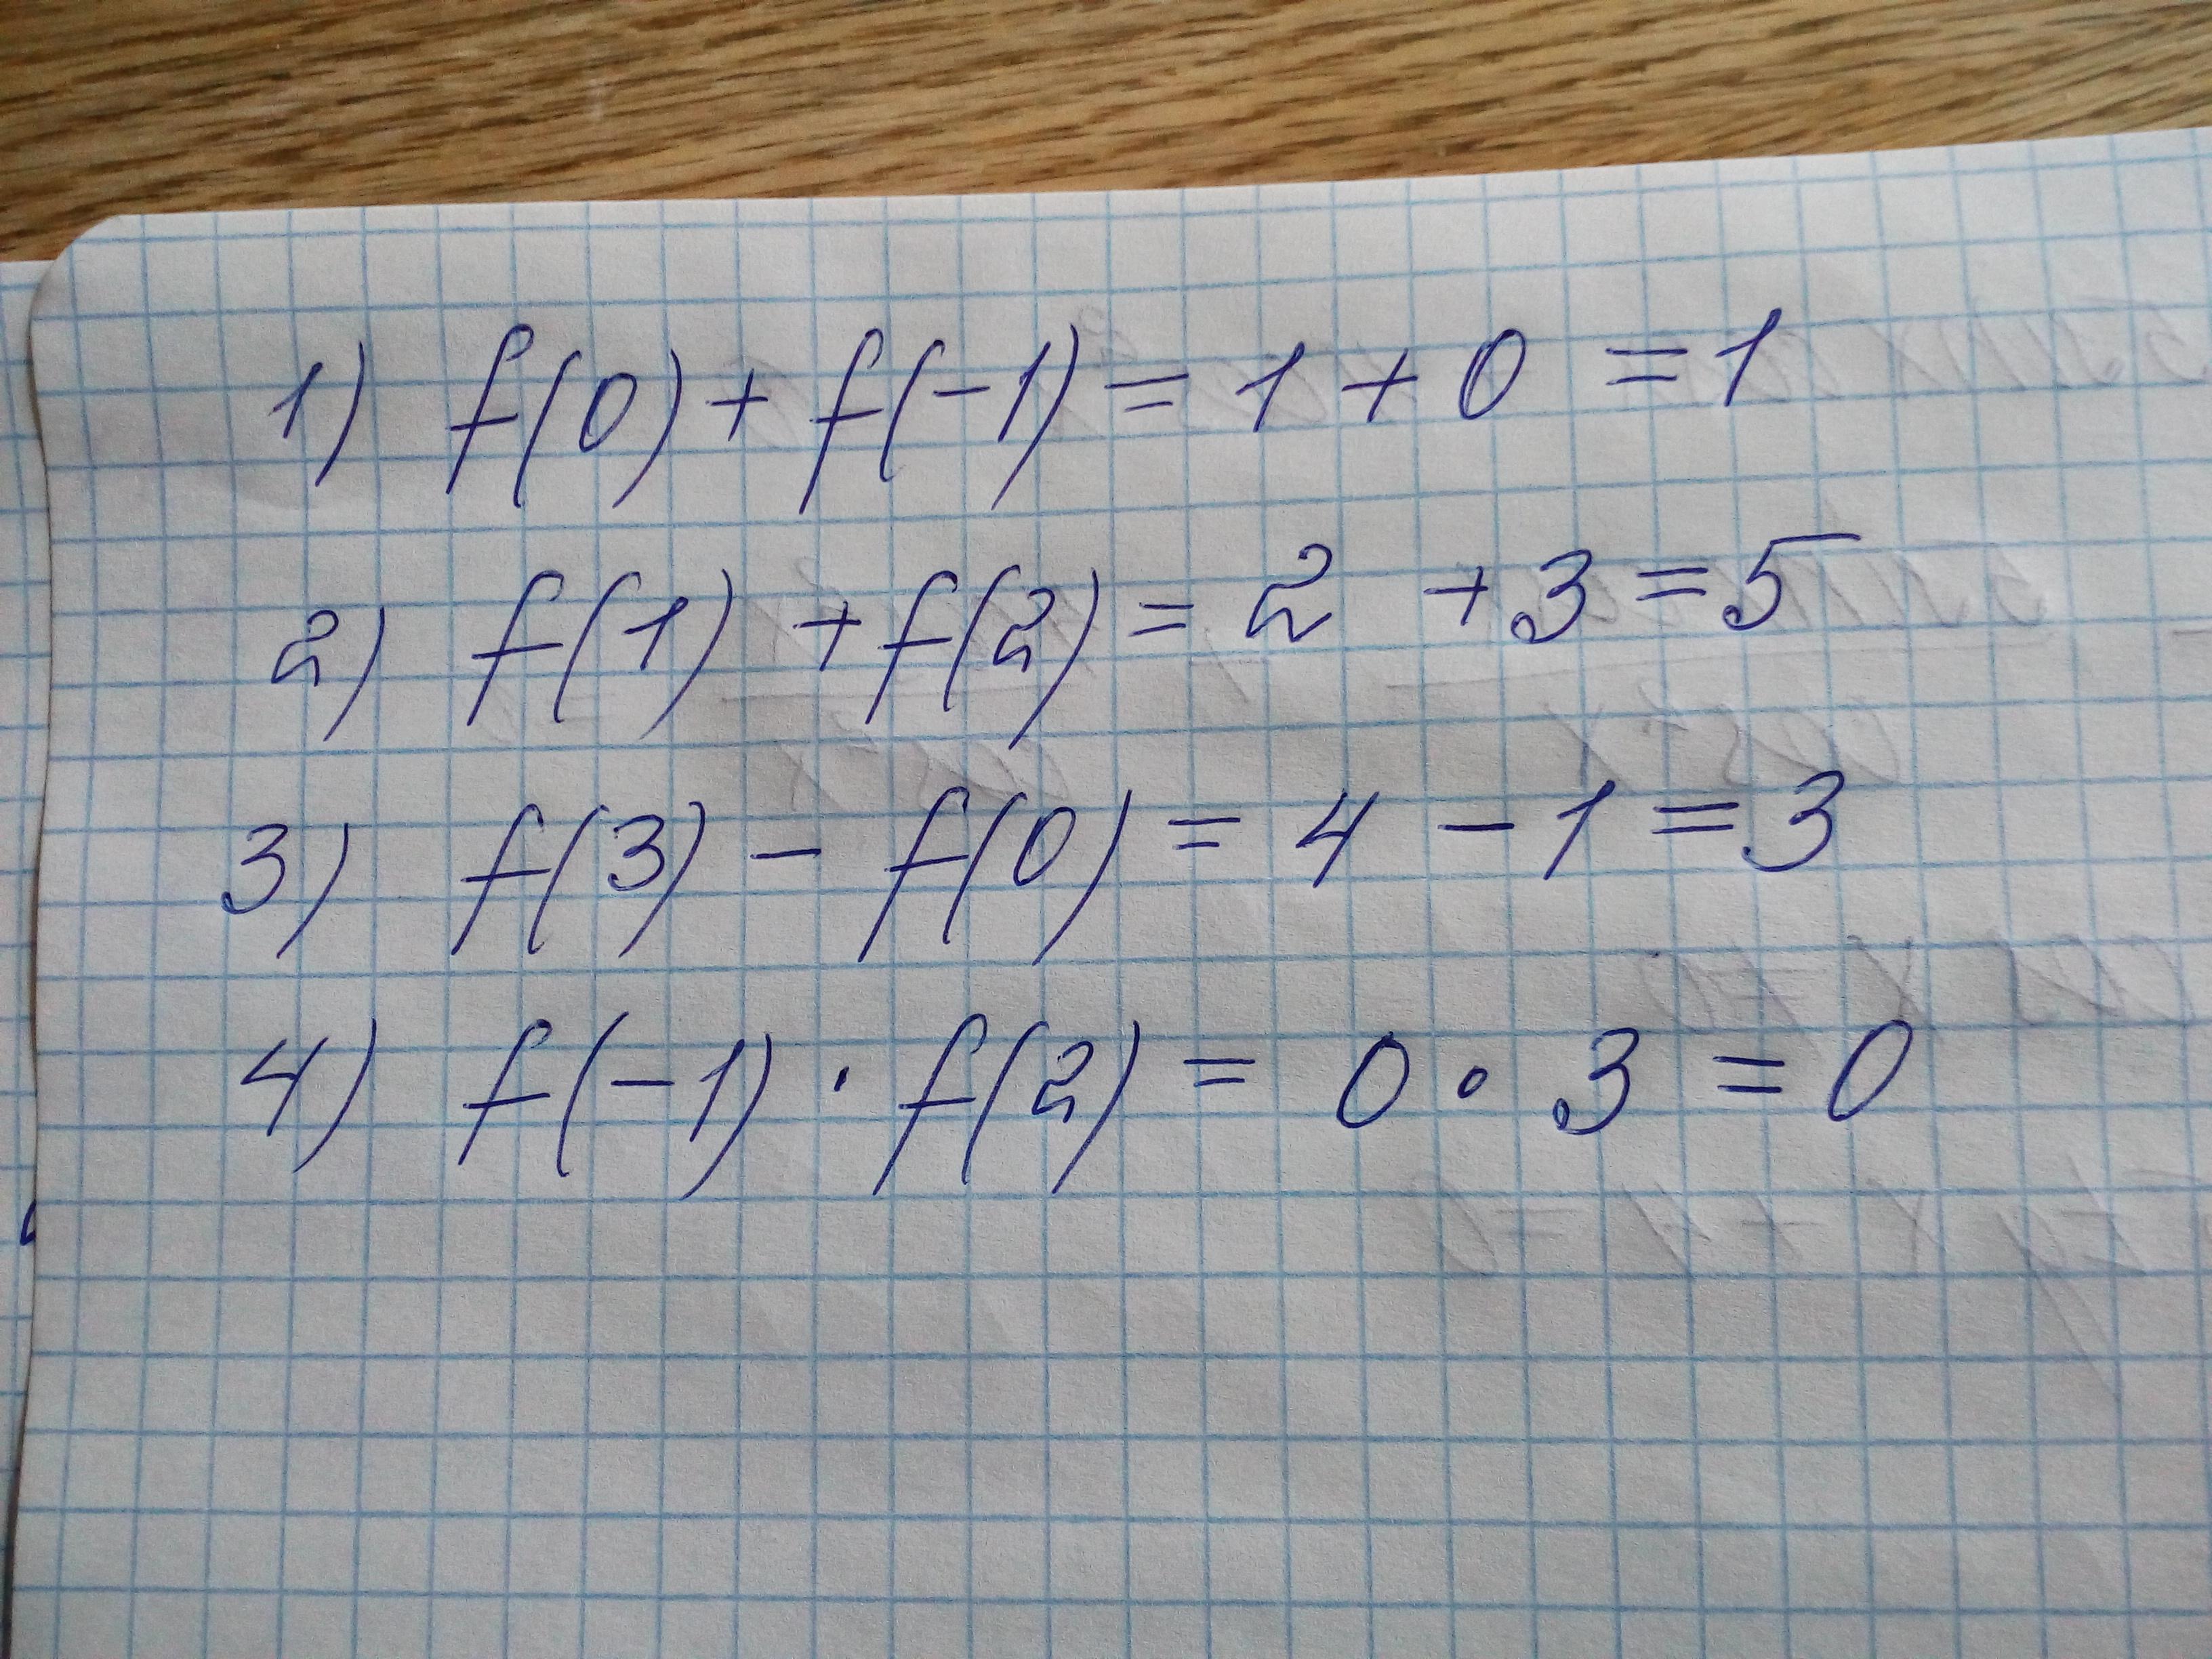 1) f(0) + f(-1) = 1 + 0 = 1
2) f(1) + f(2) = 2 + 3 = 5
3) f(3) - f(0) = 4 - 1 = 3
4) f(-1) · f(2) = 0 · 3 = 0